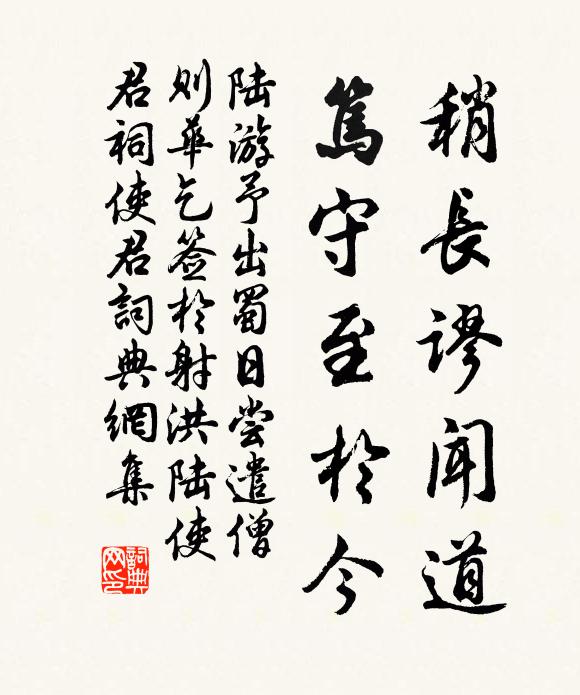 稍長谬闻道
篤守至於今
陆游予出蜀日尝遣僧
则華乞签於射洪陆使
君祠使君詞典網集
詞典网印